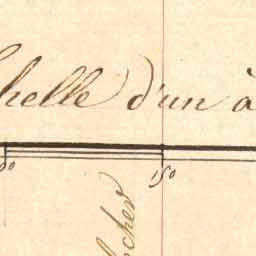 helle d'un à
00
150
cher